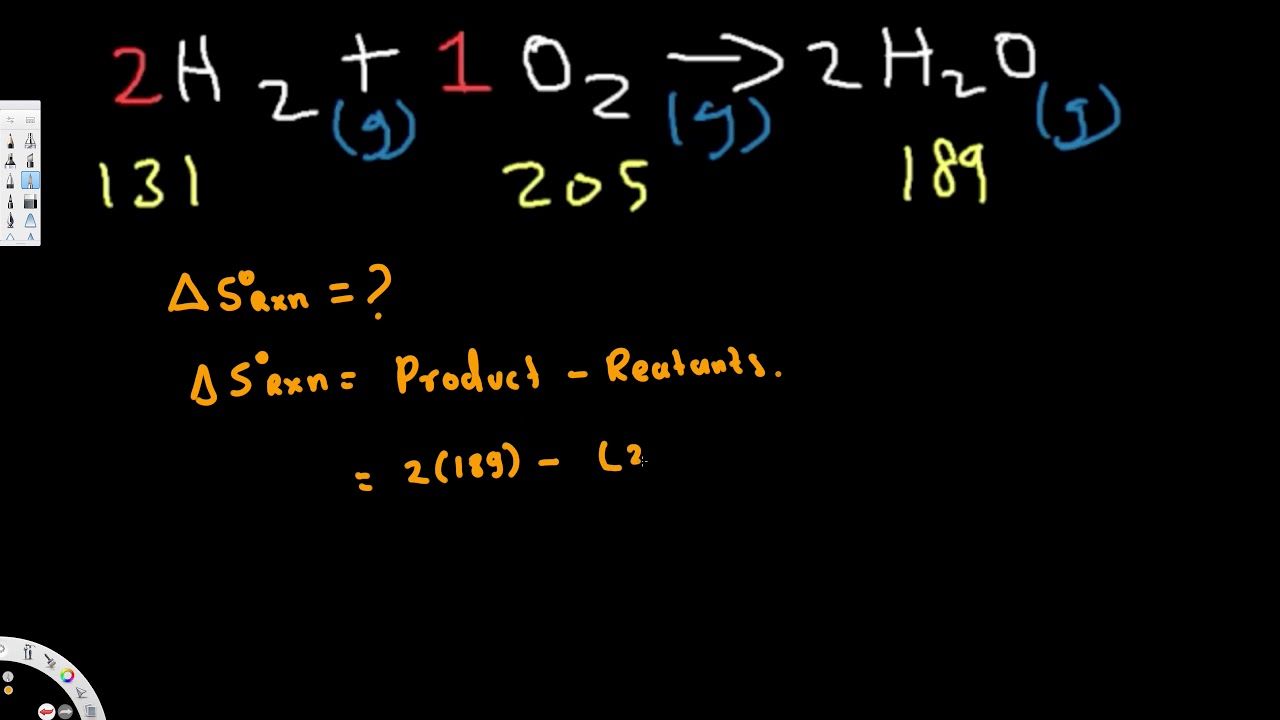 2H₂(g) + 1O₂(g) → 2H₂O(g)
131 205 189
ΔS°Rxn = ?
ΔS°Rxn = Product - Reatants.
= 2(189) - (2